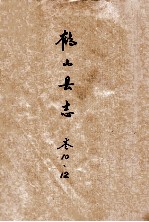 鹤山县志
卷10-12